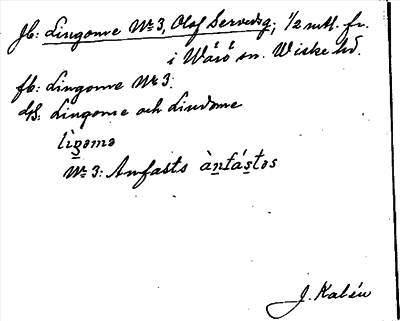 Jb: Lingome No 3, Olof Servedsg; 1/2 mtl. fr.
i Wärö sn. Wiske hd.
fb: Lingome No 3.
dß: Lingome och Lindome
lìŋomə
No 3: Anfasts àntástəs
J. Kalén